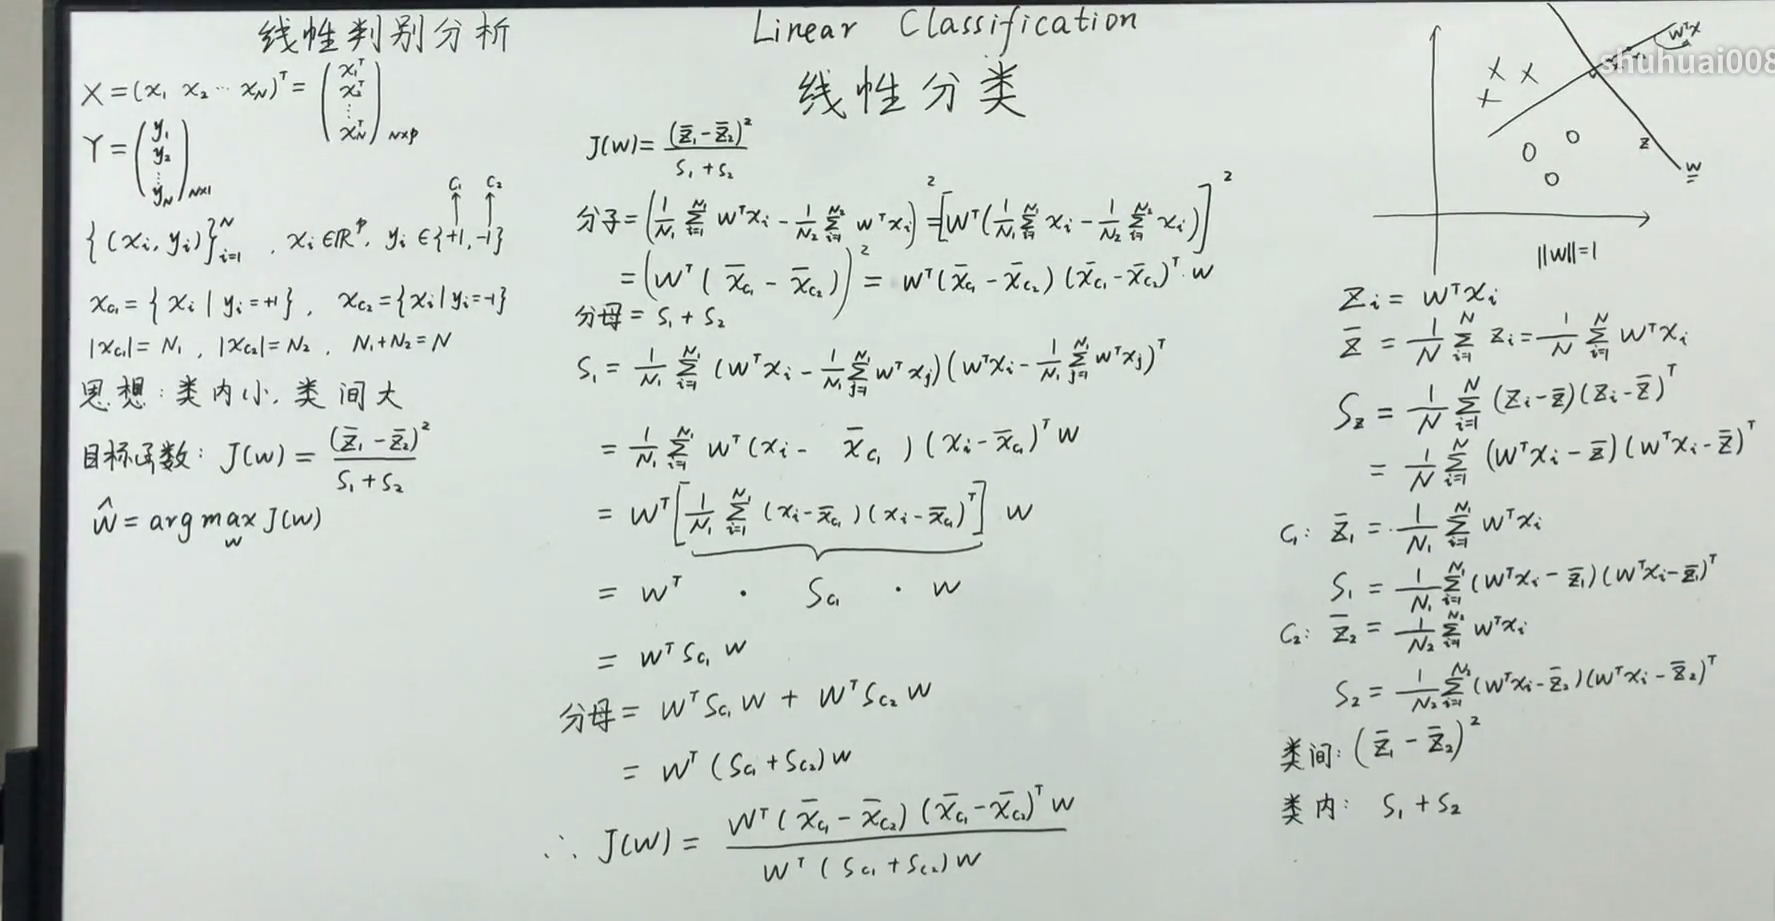 线性判别分析
X = (x₁ x₂ ⋯ x_N)ᵀ = (x₁ᵀ x₂ᵀ ⋮ x_Nᵀ)_{N×p}
Y = (y₁ y₂ ⋮ y_N)_{N×1}
C₁ C₂
↑ ↑
{(xᵢ, yᵢ)}ᵢ₌₁ᴺ , xᵢ ∈ ℝᵖ, yᵢ ∈ {+1, -1}
x_{C₁} = {xᵢ | yᵢ = +1}, x_{C₂} = {xᵢ | yᵢ = -1}
|x_{C₁}| = N₁ , |x_{C₂}| = N₂ , N₁+N₂ = N
思想: 类内小, 类间大
目标函数: J(w) = (z̄₁ - z̄₂)² / (S₁ + S₂)
ŵ = arg max_w J(w)
Linear Classification
线性分类
J(w) = (z̄₁ - z̄₂)² / (S₁ + S₂)
分子 = (1/N₁ Σᵢ₌₁^{N₁} wᵀxᵢ - 1/N₂ Σᵢ₌₁^{N₂} wᵀxᵢ)² = [wᵀ(1/N₁ Σᵢ₌₁^{N₁} xᵢ - 1/N₂ Σᵢ₌₁^{N₂} xᵢ)]²
= (wᵀ(x̄_{C₁} - x̄_{C₂}))² = wᵀ(x̄_{C₁} - x̄_{C₂})(x̄_{C₁} - x̄_{C₂})ᵀ · w
分母 = S₁ + S₂
S₁ = 1/N₁ Σᵢ₌₁^{N₁} (wᵀxᵢ - 1/N₁ Σⱼ₌₁^{N₁} wᵀxⱼ)(wᵀxᵢ - 1/N₁ Σⱼ₌₁^{N₁} wᵀxⱼ)ᵀ
= 1/N₁ Σᵢ₌₁^{N₁} wᵀ(xᵢ - x̄_{C₁})(xᵢ - x̄_{C₁})ᵀ w
= wᵀ[1/N₁ Σᵢ₌₁^{N₁} (xᵢ - x̄_{C₁})(xᵢ - x̄_{C₁})ᵀ] w
= wᵀ · S_{C₁} · w
= wᵀ S_{C₁} w
分母 = wᵀS_{C₁}w + wᵀS_{C₂}w
= wᵀ(S_{C₁} + S_{C₂})w
∴ J(w) = wᵀ(x̄_{C₁} - x̄_{C₂})(x̄_{C₁} - x̄_{C₂})ᵀw / wᵀ(S_{C₁} + S_{C₂})w
wᵀx
shuhuai008
z
w
||w||=1
zᵢ = wᵀxᵢ
z̄ = 1/N Σᵢ₌₁ᴺ zᵢ = 1/N Σᵢ₌₁ᴺ wᵀxᵢ
S_z = 1/N Σᵢ₌₁ᴺ (zᵢ - z̄)(zᵢ - z̄)ᵀ
= 1/N Σᵢ₌₁ᴺ (wᵀxᵢ - z̄)(wᵀxᵢ - z̄)ᵀ
C₁: z̄₁ = 1/N₁ Σᵢ₌₁^{N₁} wᵀxᵢ
S₁ = 1/N₁ Σᵢ₌₁^{N₁} (wᵀxᵢ - z̄₁)(wᵀxᵢ - z̄₁)ᵀ
C₂: z̄₂ = 1/N₂ Σᵢ₌₁^{N₂} wᵀxᵢ
S₂ = 1/N₂ Σᵢ₌₁^{N₂} (wᵀxᵢ - z̄₂)(wᵀxᵢ - z̄₂)ᵀ
类间: (z̄₁ - z̄₂)²
类内: S₁ + S₂